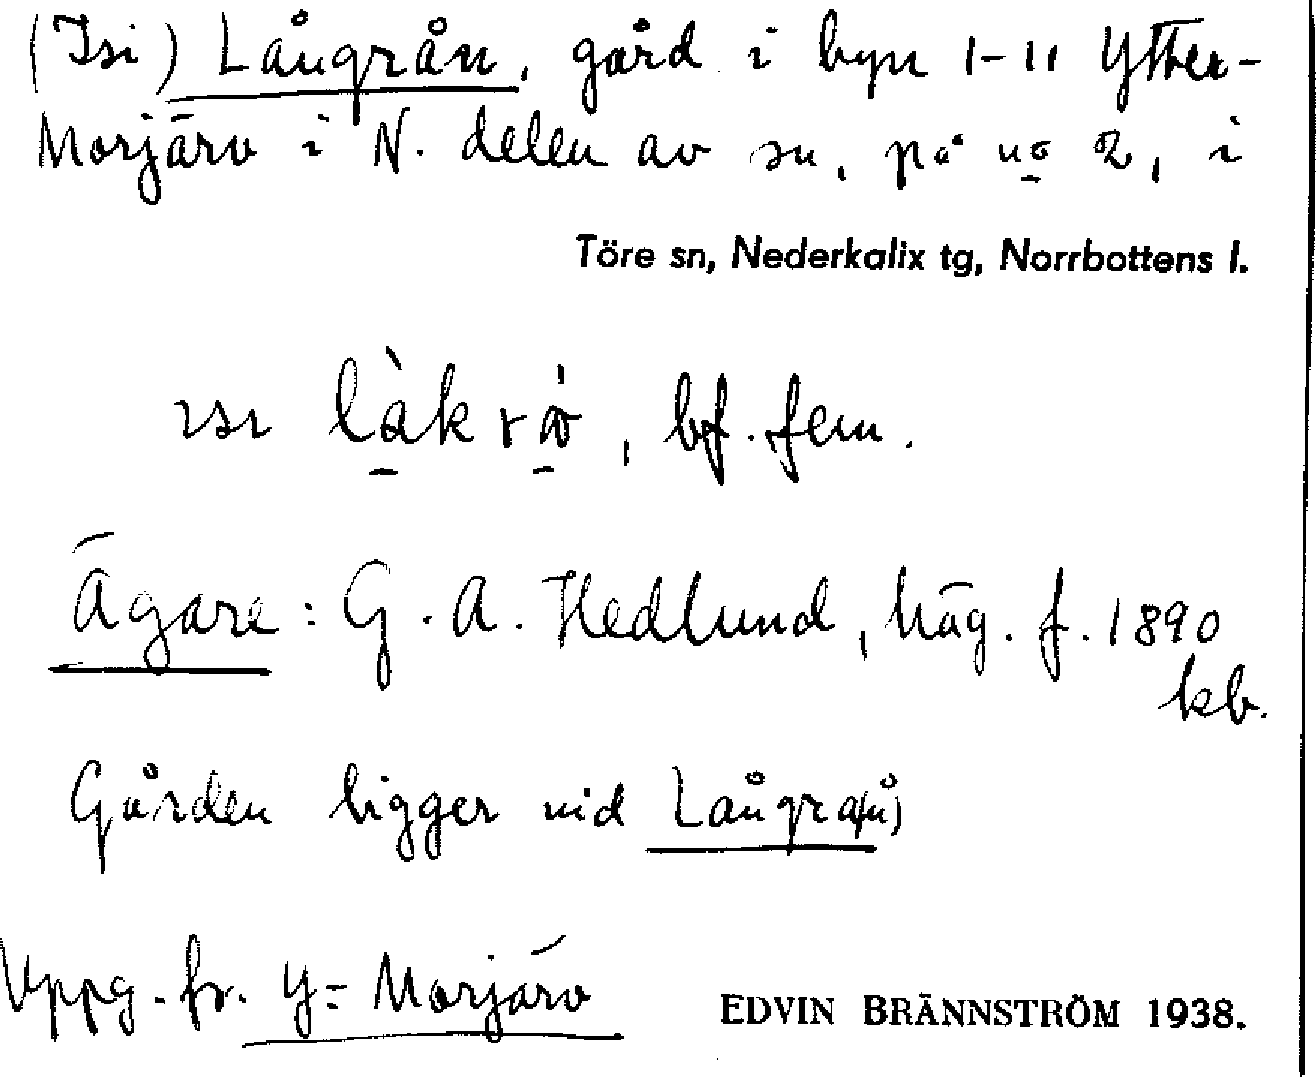 (Isi) Långrån, gård i byn 1-11 Ytter-
Morjärv i N. delen av sn, på no 2, i
Töre sn, Nederkalix tg, Norrbottens l.
ısı bf. fem.
Ägare: G. A. Hedlund, häg. f. 1890
kb.
Gården ligger vid Långrå(n)
Uppg. fr. Y= Morjärv
EDVIN BRÄNNSTRÖM 1938.